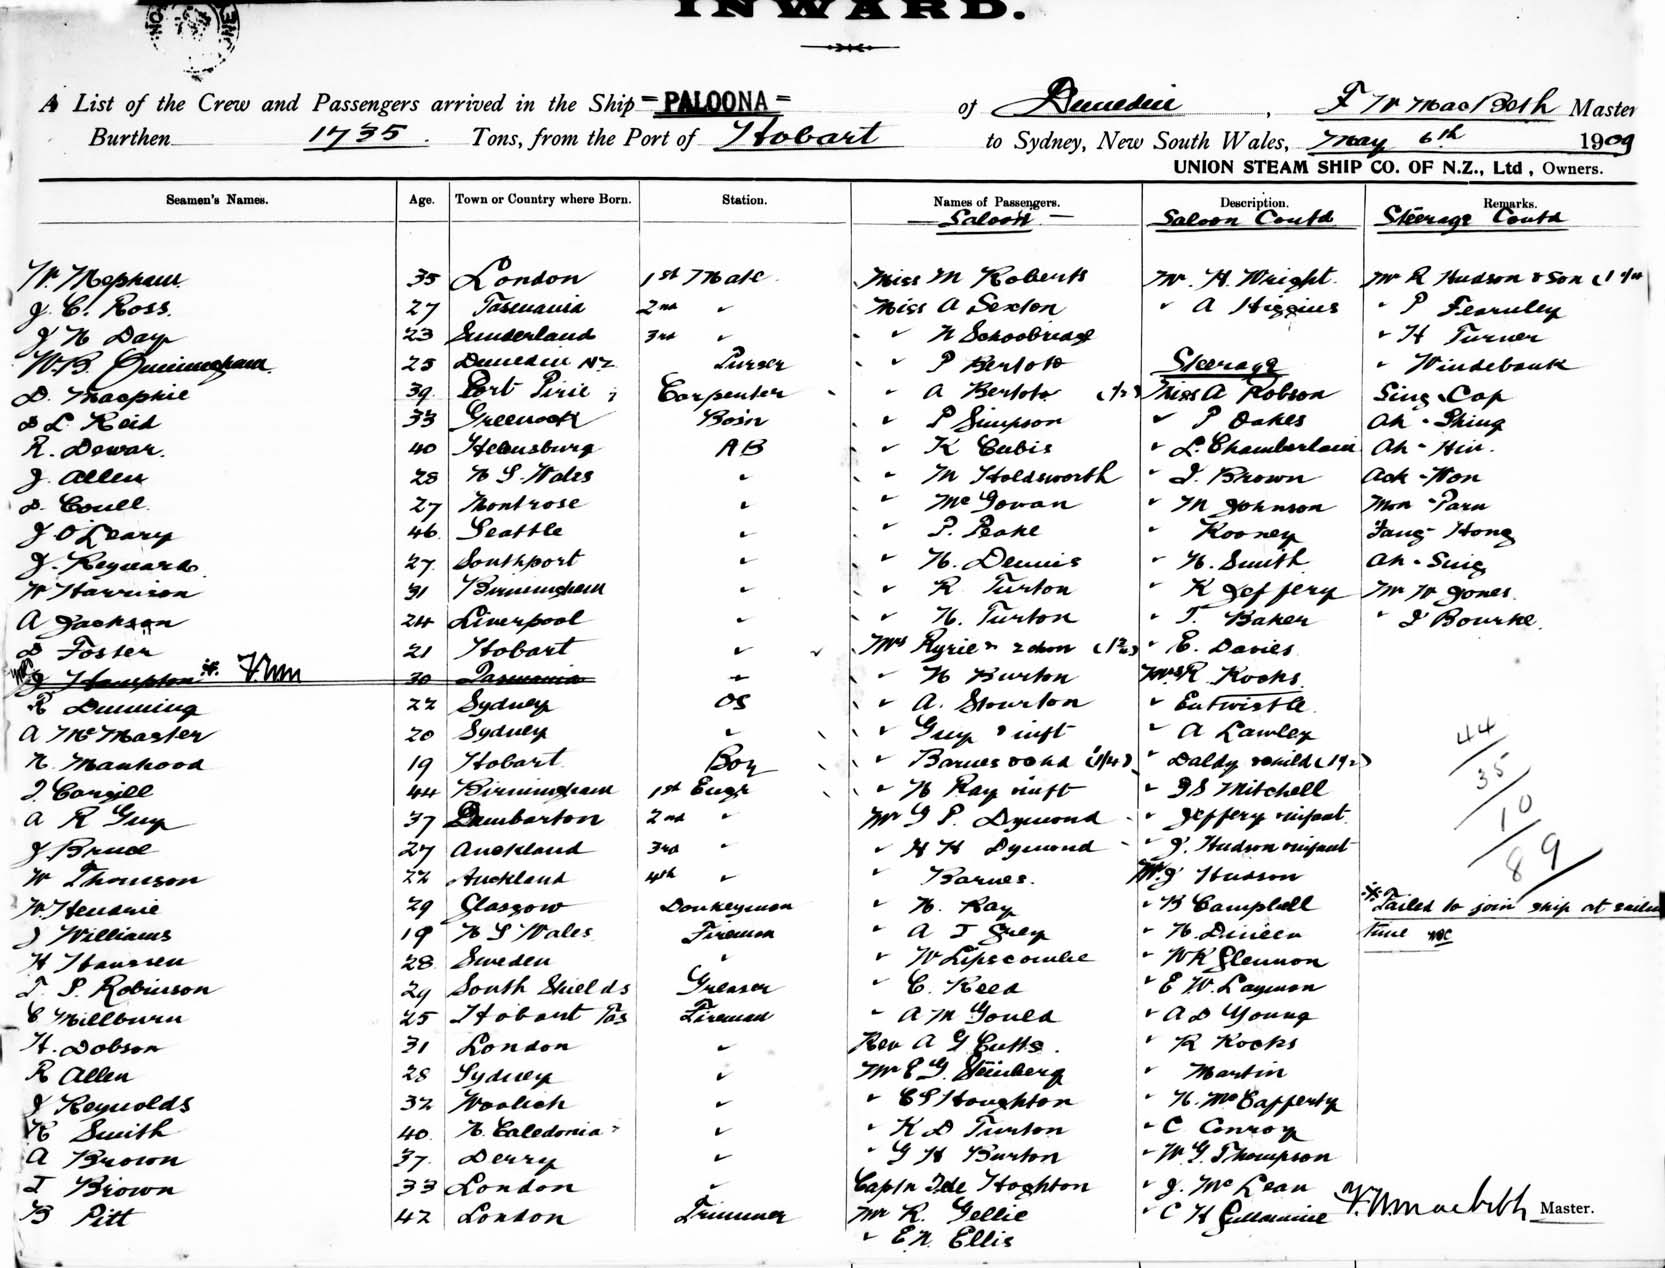 INWARD.
A List of the Crew and Passengers arrived in the Ship = PALOONA = of Dunedin, F W MacBeth Master
Burthen 1735. Tons, from the Port of Hobart to Sydney, New South Wales, May 6th 1909
UNION STEAM SHIP CO. OF N.Z., Ltd, Owners.
Seamen's Names. Age. Town or Country where Born. Station. Names of Passengers. Description. Remarks.
Saloon Saloon Contd Steerage Contd
W. Mepham 35 London 1st Mate Miss M Roberts Mr. H. Wright Mr R Hudson & Son
J. C. Ross. 27 Tasmania 2nd " Miss A Sexton " A Higgins " P Fearnley
J N Day 23 Sunderland 3rd " " N Schoobridge " H Turner
W.B. Cunningham 25 Dunedin NZ Purser " P Bertoto Steerage " Windebank
D. Macphie 39 Port Pirie Carpenter " A Bertoto Miss A Robson Sing Cap
D L Reid 33 Greenock Bosn " P Simpson " P Oakes Ah - Shing
R. Dewar. 40 Helensburg AB " K Cubis " L. Chamberlain Ah - Hin.
J. Allen 28 N S. Wales " " M Holdsworth " J. Brown Ack - Won
D. Coull. 27 Montrose " " McGowan " M Johnson Mon - Parn
J O'Leary 46 Seattle " " P. Peake " Rooney Fang - Hong
J. Regnard. 27. Southport " " N. Dennis " N. Smith Ah - Sing
W Harrison 31 Birmingham " " R Turton " K Jeffery Mr W Jones
A Jackson 24 Liverpool " " N. Turton " T. Baker " J Bourke.
D Foster 21 Hobart " Mrs Ryrie & 2 chdn " E. Davies
J Hampton 30 Tasmania " " N Burton Mrs R. Rooks
R Dunning 22 Sydney OS " A. Stourton " Entwistle
A McMaster 20 Sydney " " Guy & inft " A Lawley
N. Manhood 19 Hobart Boy " Barnes & chd " Daldy & child
J. Cargill 44 Birmingham 1st Engr " N Ray & inft " J S Mitchell
A R Guy 37 Dumbarton 2nd " Mr G P. Dymond " Jeffery & infant
J. Bruce 27 Auckland 3rd " " H H Dymond " J. Hudson & infant
W Thomson 22 Auckland 4th " " Barnes. Mr J Hudson
W. Hendrie 29 Glasgow Donkeyman " N. Ray " H Campbell * Failed to join ship at sailing
J Williams 19 N S Wales Fireman " A J Grey " N. Dineen time
H Hanssen 28 Sweden " " W Lipscombe " W K Glennon
T. P. Robinson 29 South Shields Greaser " C. Reed " E W. Layman
C Millburn 25 Hobart Tas Fireman " A M Gould " A D Young
H. Dobson 31 London " Rev A G Cutts. " R Rooks
R Allen 28 Sydney " Mr E G. Steinberg " Martin
J Reynolds 32 Woolich " " C S Houghton " N. McCafferty
K Smith 40 N. Caledonia " " K D Turton " C Conroy
A Brown 37. Derry " " G H Burton " W G. Thompson
T Brown 33 London " Captn J de Hoghton " J. McLean
B Pitt 42 London Trimmer Mr R. Gellie " C H F.W. Macbeth Master.
" E. N. Ellis
44
35
10
89